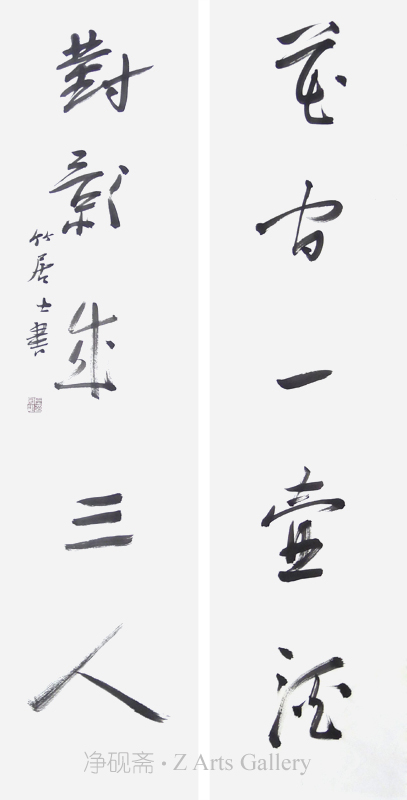 花間一壺酒
對影成三人
竹居士書
净砚斋·Z Arts Gallery